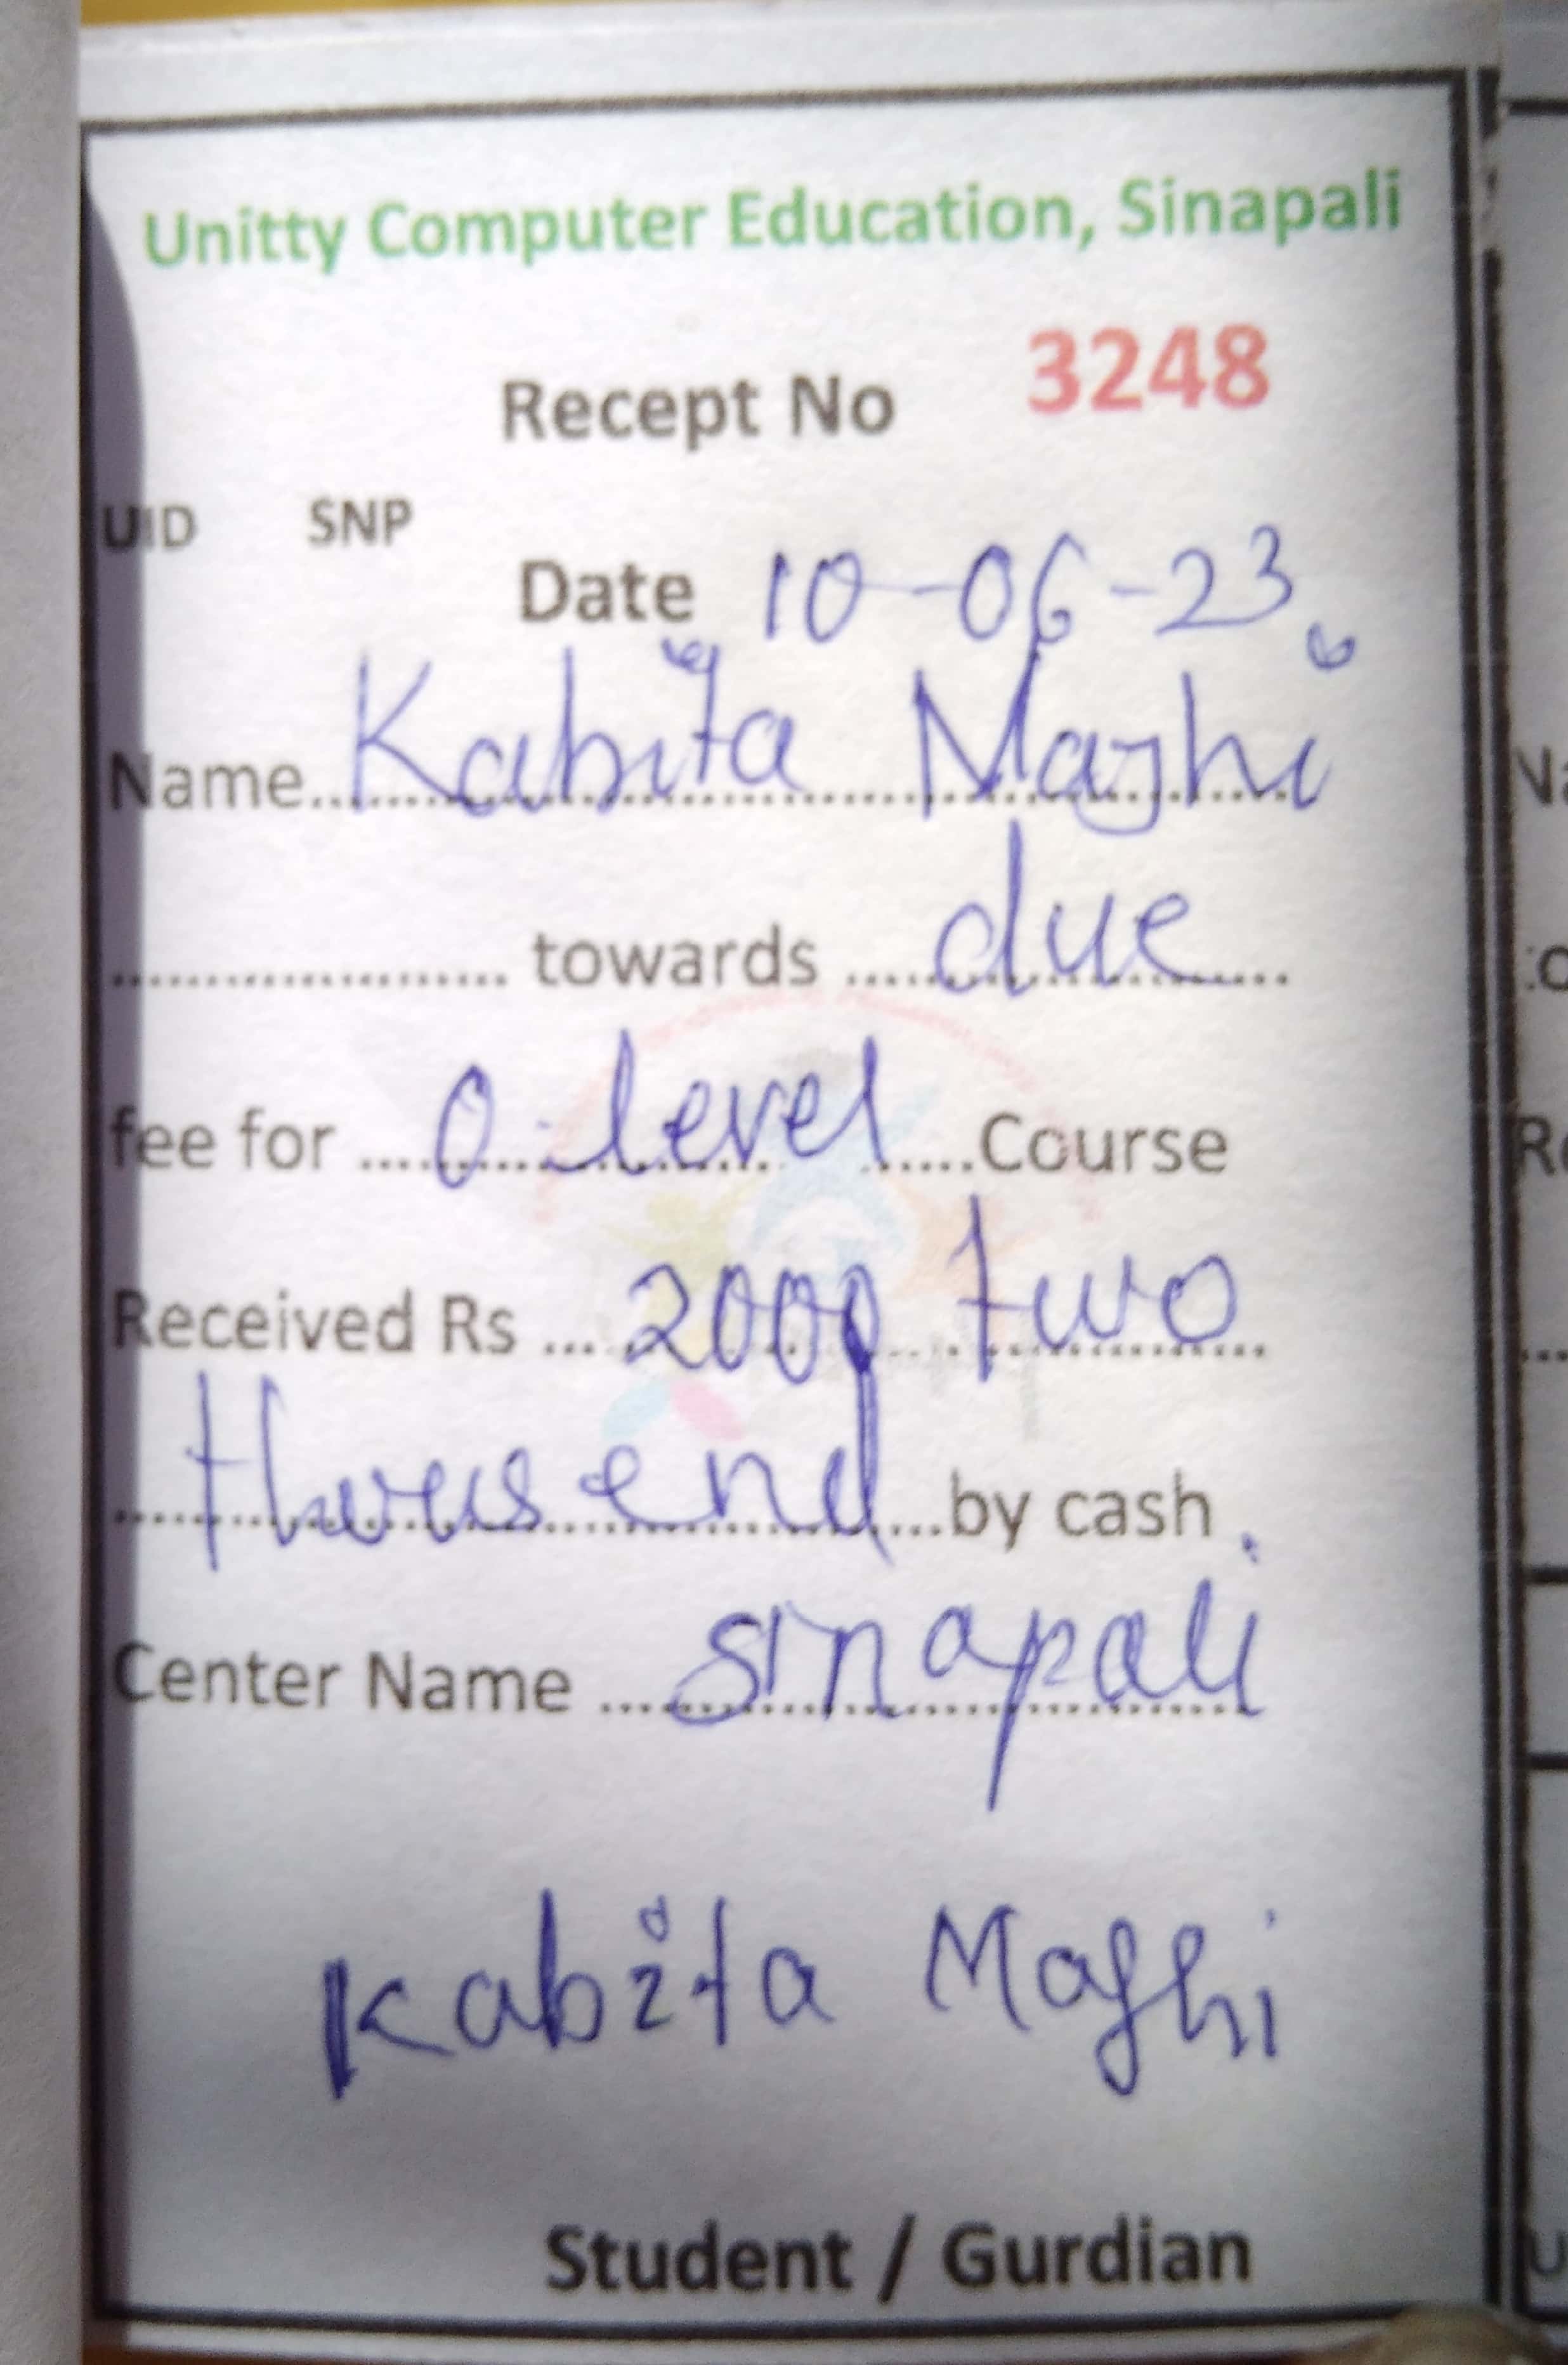 Unitty Computer Education, Sinapali
Recept No 3248
UID SNP
Date 10-06-23
Name Kabita Majhi
towards due
fee for O-level Course
Received Rs 2000 two
thousend by cash
Center Name Sinapali
Kabita Majhi
Student / Gurdian